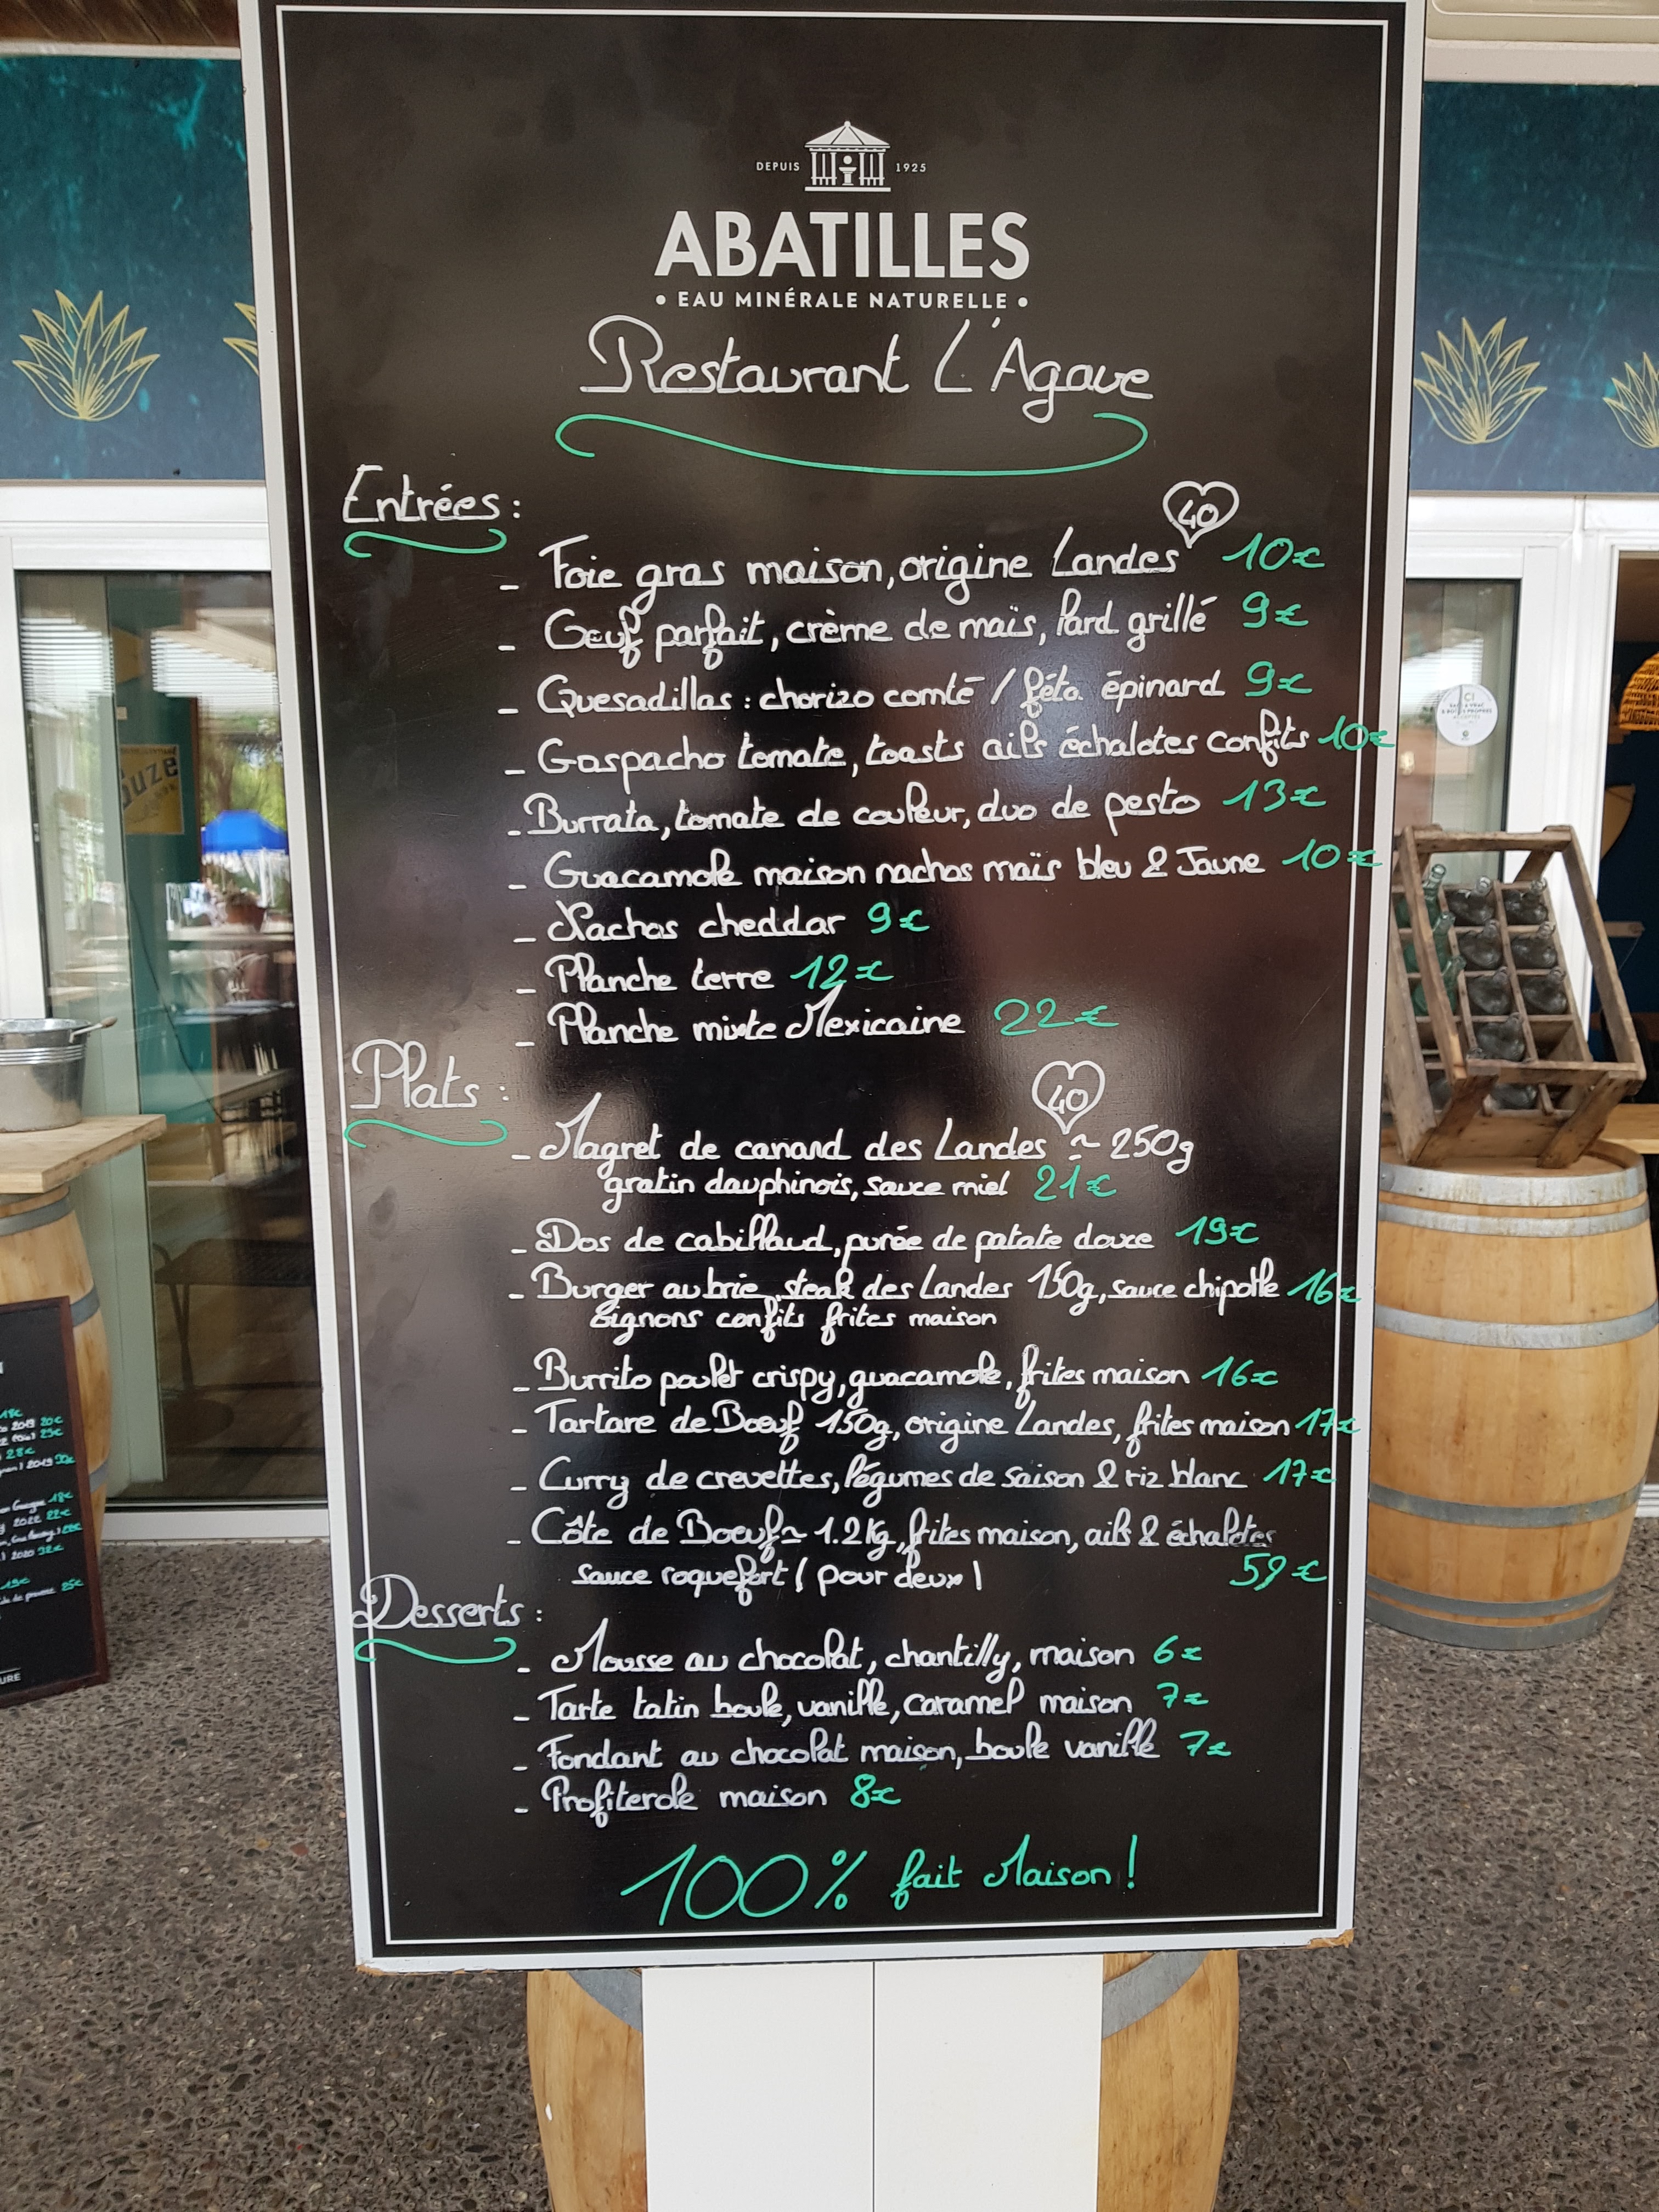 DEPUIS 1925
ABATILLES
• EAU MINÉRALE NATURELLE •
Restaurant L'Agave
Entrées :
40
- Foie gras maison, origine Landes 10€
- Oeuf parfait, crème de maïs, lard grillé 9€
- Quesadillas : chorizo comté / féta épinard 9€
- Gaspacho tomate, toasts ails échalotes confits 10€
- Burrata, tomate de couleur, duo de pesto 13€
- Guacamole maison nachos maïs bleu & Jaune 10€
- Nachos cheddar 9€
- Planche terre 12€
- Planche mixte Mexicaine 22€
Plats :
40
- Magret de canard des Landes ~ 250g
gratin dauphinois, sauce miel 21€
- Dos de cabillaud, purée de patate douce 19€
- Burger au brie, steak des Landes 150g, sauce chipotle 16€
oignons confits frites maison
- Burrito poulet crispy, guacamole, frites maison 16€
- Tartare de Boeuf 150g, origine Landes, frites maison 17€
- Curry de crevettes, légumes de saison & riz blanc 17€
- Côte de Boeuf ~ 1.2Kg, frites maison, ails & échalotes
sauce roquefort ( pour deux ) 59€
Desserts :
- Mousse au chocolat, chantilly, maison 6€
- Tarte tatin boule, vanille, caramel maison 7€
- Fondant au chocolat maison, boule vanille 7€
- Profiterole maison 8€
100% fait Maison !